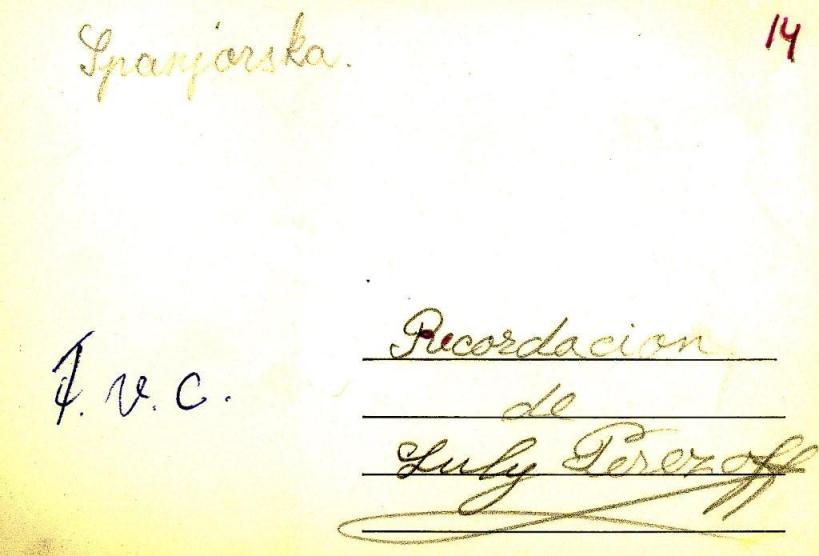 Spanjorska.
14
Recordacion
de
F. V. C.
Luly Perezoff